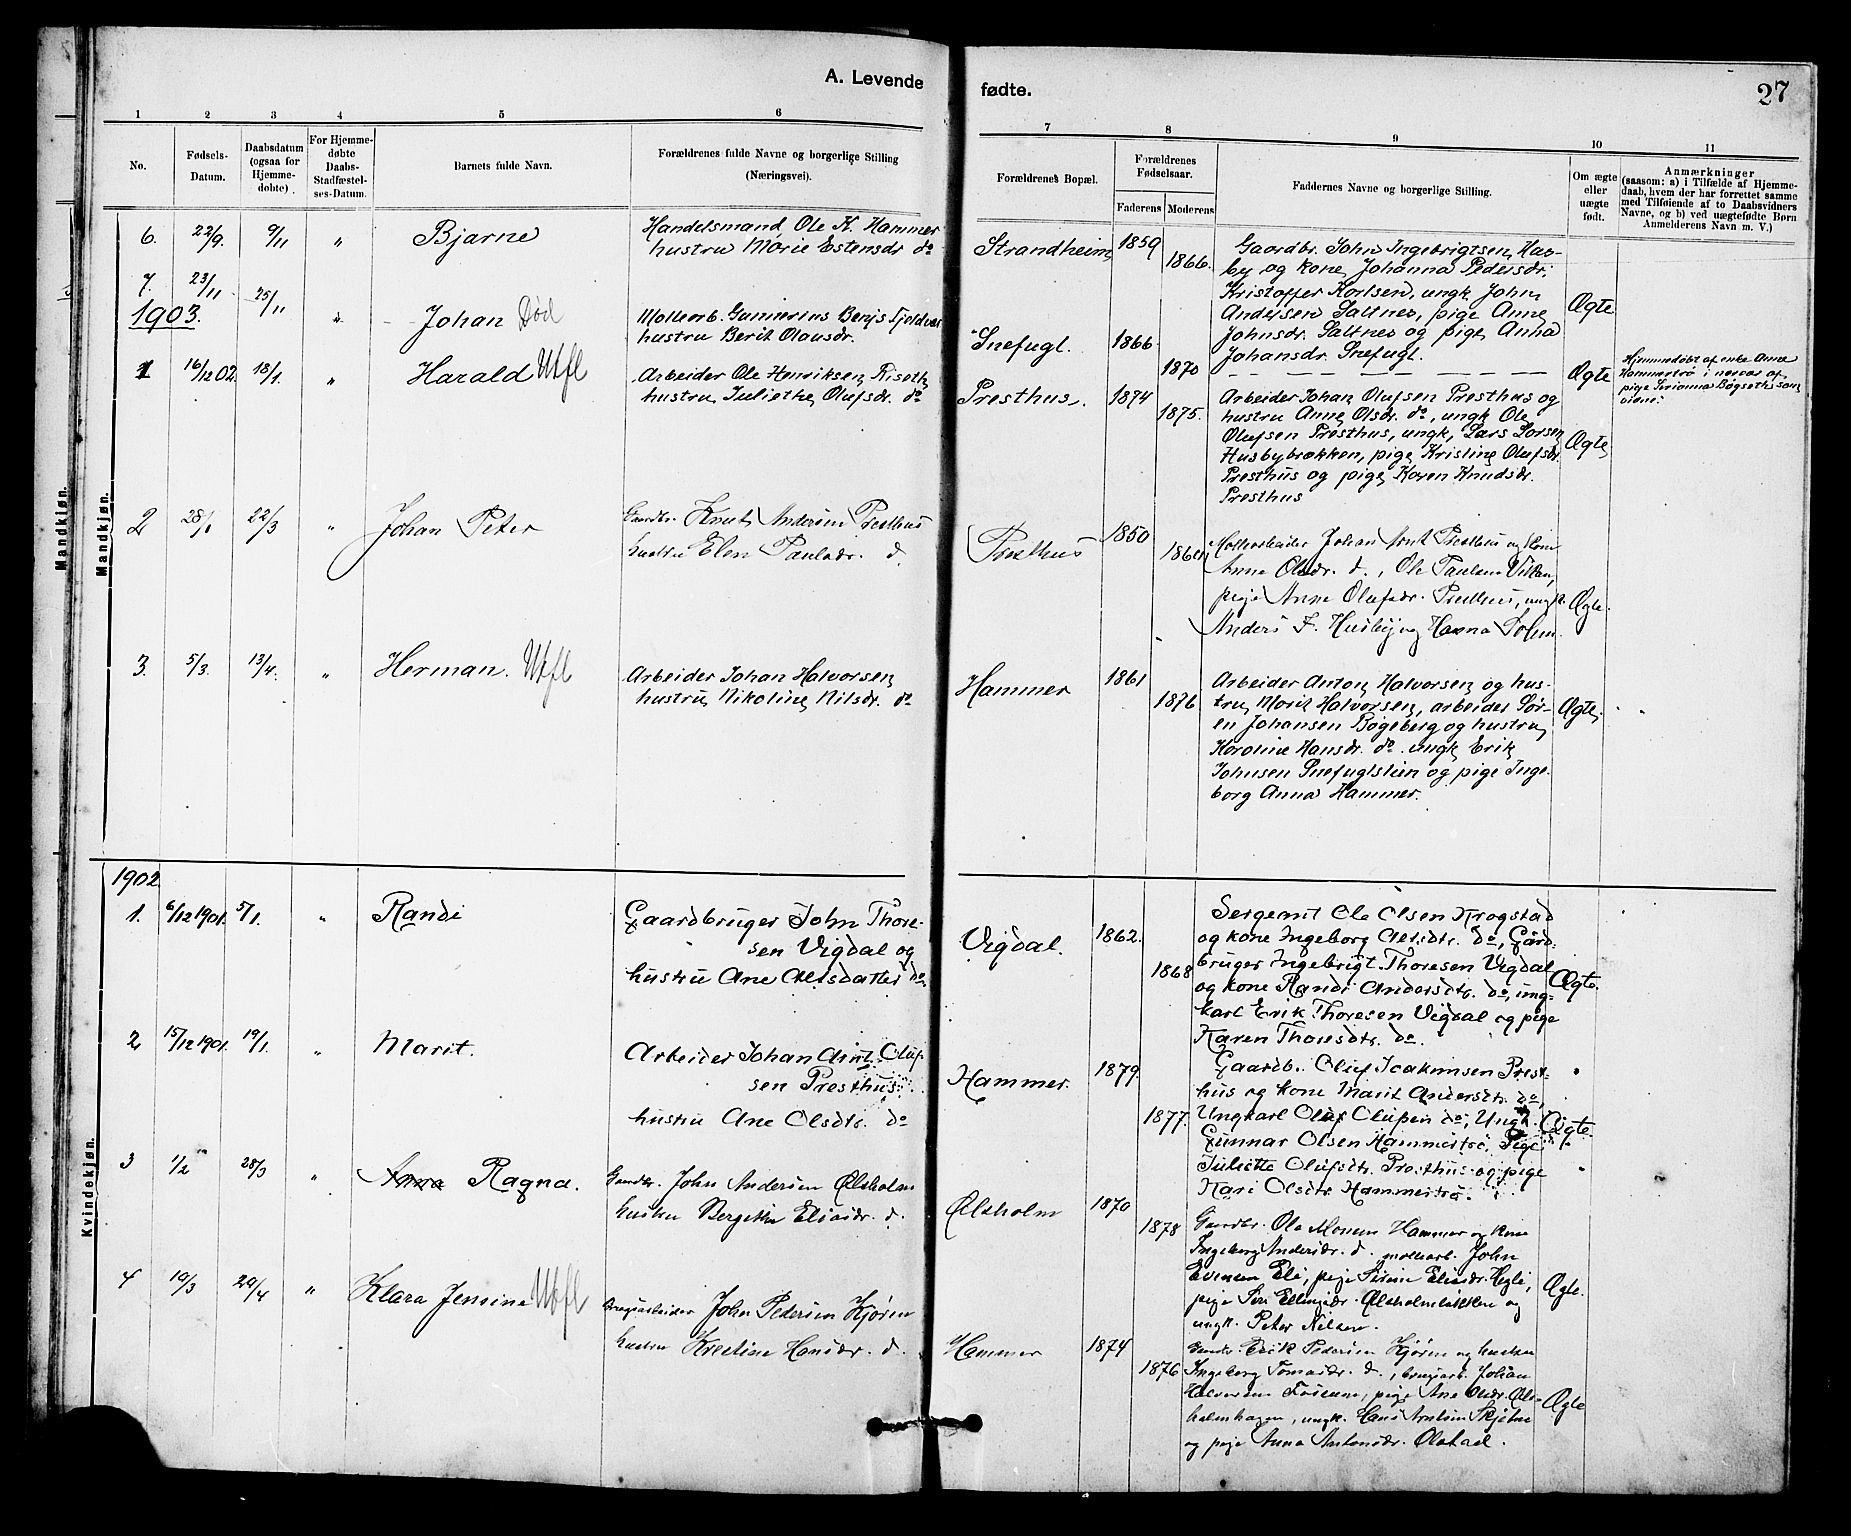 A. Levende
fødte.
27
1 2 3 4 5 6
7 8 9 10 11
No.
Fødsels-
Datum.
Daabsdatum
(ogsaa for
Hjemme-
døbte).
For Hjemme-
døbte
Daabs-
Stadfæstel-
ses-Datum.
Barnets fulde Navn.
Forældrenes fulde Navne og borgerlige Stilling
(Næringsvei).
Forældrenes Bopæl.
Forældrenes
Fødselsaar.
Faderens Moderens
Faddernes Navne og borgerlige Stilling.
Om ægte
eller
uægte
født.
Anmærkninger
(saasom: a) i Tilfælde af Hjemme-
daab, hvem der har forrettet samme
med Tilføiende af to Daabsvidners
Navne, og b) ved uægtefødte Børn
Anmelderens Navn m. V.)
Mandkjøn.
Mandkjøn.
6. 22/9. 9/11 " Bjarne
Handelsmand Ole K. Hammer
hustru Marie Estensdr. do
Strandheim 1859 1866.
Gaardbr. John Ingebrigtsen Hav-
by og kone Johanna Pedersdr.
Kristoffer Karlsen, ungk. John
Andersen Saltnes, pige Anne
Johnsdr. Saltnes og pige Anna
Johansdr. Snefugl.
Ægte
7. 23/11 25/11 " Johan Død
Mollearb. Gunnerius Benjs
hustru Berit Olausdr.
Snefugl. 1866. 1870
Ægte
Hjemmedøbt af enke Anne
Hammertrø i nærvær af
pige Serianna Bøgseth som
vidne.
1903.
1 16/12 02. 18/1. " Harald Utfl
Arbeider Ole Henriksen Riseth
hustru Juliethe Olufsdr. do
Presthus. 1874 1875.
Arbeider Johan Olufsen Presthus og
hustru Anne Olsdr. do, ungk. Ole
Olufsen Presthus, ungk. Lars Larsen
Husbybrækken, pige Kristine Olufsdr.
Presthus og pige Karen Knudsdr.
Presthus
Ægte
2 28/1 22/3 " Johan Peter
Gaardbr. Knut Andersen Presthus
hustru Elen Paulsdr. d.
Presthus 1850
Mollearbeider Johan Arnt Presthus og kone
Anne Olsdr. d., Ole Paulsen Vikan,
pige Anne Olufsdr. Presthus, ungk.
Anders F. Husby og Hanna
Ægte.
3. 5/3. 13/4. " Herman. Utfl
Arbeider Johan Halvorsen
hustru Nikoline Nilsdr. do
Hammer 1861 1876
Arbeider Anton Halvorsen og hus-
tru Marit Halvorsen, arbeider Sør-
en Johansen Bøgeberg og hustru
Karoline Hansdr. do. ungk. Erik
Johnsen Snefuglstien og pige Inge-
borg Anna Hammer.
Ægte.
Kvindekjøn.
1902
1. 6/12 1901. 5/1. " Randi
Gaardbruger John Thore-
sen Vigdal og
hustru Ane Alisdatter do
Vigdal. 1862. 1868
Sergeant Ole Olsen Krogstad
og kone Ingeborg Alisdtr. do, Gård-
bruger Ingebrigt Thoresen Vigdal
og kone Randi Andersdtr. do, ung-
karl Erik Thoresen Vigdal og pige
Karen Thoresdtr. do.
Ægte.
2 15/12 1901. 19/1. " Marit.
Arbeider Johan Arnt Oluf-
sen Presthus
hustru Ane Olsdtr. do
Hammer. 1879. 1877.
Gaardb. Oluf Joakimsen Prest-
hus og kone Marit Andersdtr. do,
Ungkarl Oluf Olufsen do, Ungk.
Gunnar Olsen Hammertrø, Pige
Juliette Olufsdtr. Presthus og pige
Kari Olsdtr. Hammertrø.
Ægte.
3 1/2 28/3 " Anna Ragna.
Gaardbr. John Andersen Ølsholm
hustru Bergitha Eliasdr. d.
Ølsholm 1870 1878
Gaardbr. Ole Monsen Hammer og kone
Ingeborg Andersdr. d. mollearb. John
Evensen Eli, pige Sirine Eliasdr. Hegli,
pige Siri Ellingsdr. Ølsholmsløkken og
ungk. Peter Nilsen.
Ægte.
4 19/3 29/4 " Klara Jensine Utfl
Brugsarbeider John Pedersen Kjøren
hustru Kristine Hansdr. d.
Hammer 1874 1876
Gaardbr. Erik Pedersen Kjøren og hustru
Ingeborg Tomasdr. d., brugsarb. Johan
Halvorsen pige Ane Olsdr. Øls-
holmhagen, ungk. Hans Arntsen Skjetne
og pige Anna Antonsdr. Ølstad.
Ægte